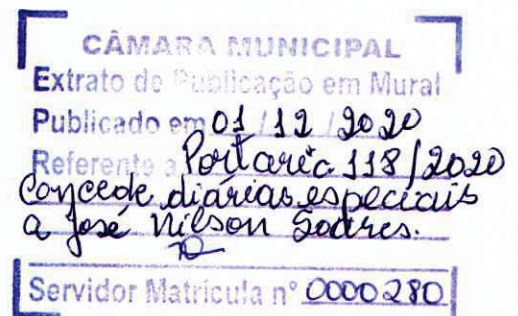 CÂMARA MUNICIPAL
Extrato de Publicação em Mural
Publicado em 01 / 12 / 2020
Referente a Portaria 118/2020
Concede diárias especiais
a José Nilson Soares.
Servidor Matrícula nº 0000280